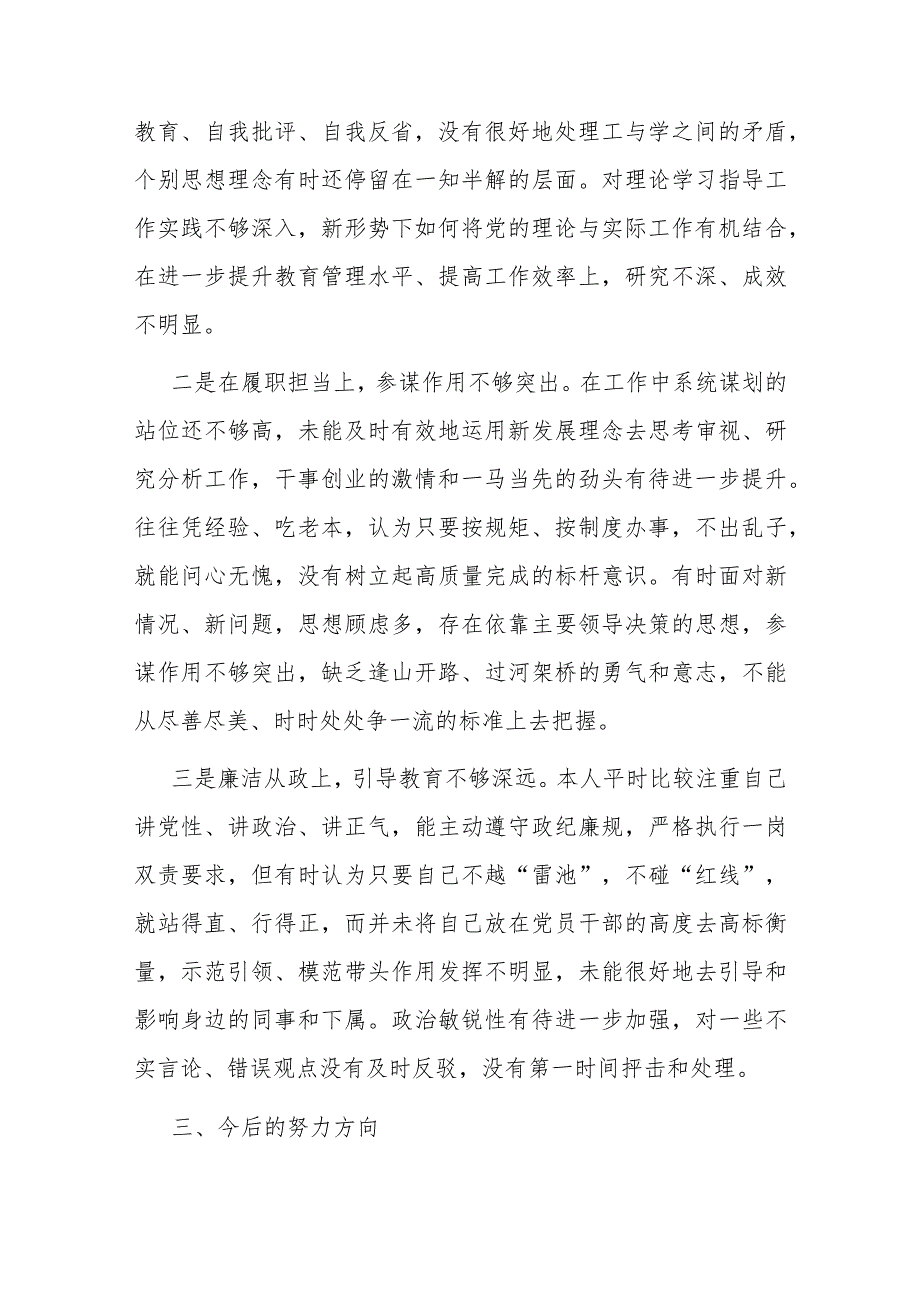 教育、自我批评、自我反省，没有很好地处理工与学之间的矛盾，
个别思想理念有时还停留在一知半解的层面。对理论学习指导工
作实践不够深入，新形势下如何将党的理论与实际工作有机结合，
在进一步提升教育管理水平、提高工作效率上，研究不深、成效
不明显。
二是在履职担当上，参谋作用不够突出。在工作中系统谋划的
站位还不够高，未能及时有效地运用新发展理念去思考审视、研
究分析工作，干事创业的激情和一马当先的劲头有待进一步提升。
往往凭经验、吃老本，认为只要按规矩、按制度办事，不出乱子，
就能问心无愧，没有树立起高质量完成的标杆意识。有时面对新
情况、新问题，思想顾虑多，存在依靠主要领导决策的思想，参
谋作用不够突出，缺乏逢山开路、过河架桥的勇气和意志，不能
从尽善尽美、时时处处争一流的标准上去把握。
三是廉洁从政上，引导教育不够深远。本人平时比较注重自己
讲党性、讲政治、讲正气，能主动遵守政纪廉规，严格执行一岗
双责要求，但有时认为只要自己不越“雷池”，不碰“红线”，
就站得直、行得正，而并未将自己放在党员干部的高度去高标衡
量，示范引领、模范带头作用发挥不明显，未能很好地去引导和
影响身边的同事和下属。政治敏锐性有待进一步加强，对一些不
实言论、错误观点没有及时反驳，没有第一时间抨击和处理。
三、今后的努力方向